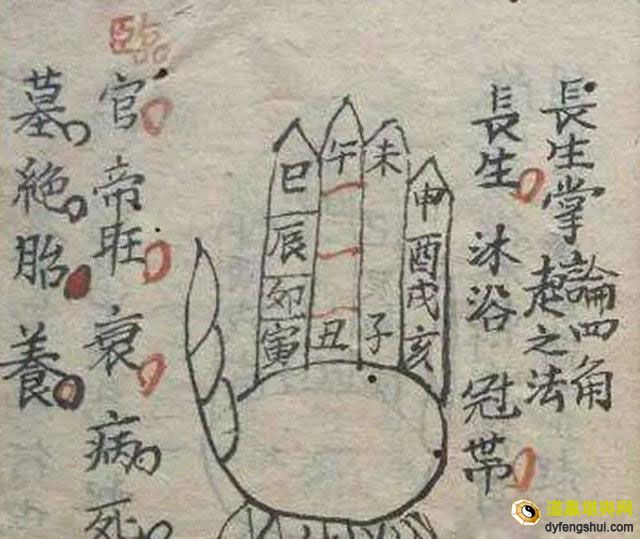 長生掌論四角
起之法
長生 沐浴 冠帯
申酉戌亥
未子
午丑
巳辰卯寅
臨官 帝旺 衰 病 死
墓 絶 胎 養
dyfengshui.com